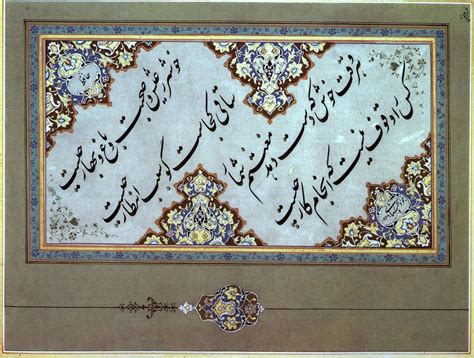 خوشتر ز عیش و صحبت و باغ و بهار چیست
ساقی کجاست گو سبب انتظار چیست
هر وقت خوش که دست دهد مغتنم شمار
کس را وقوف نیست که انجام کار چیست